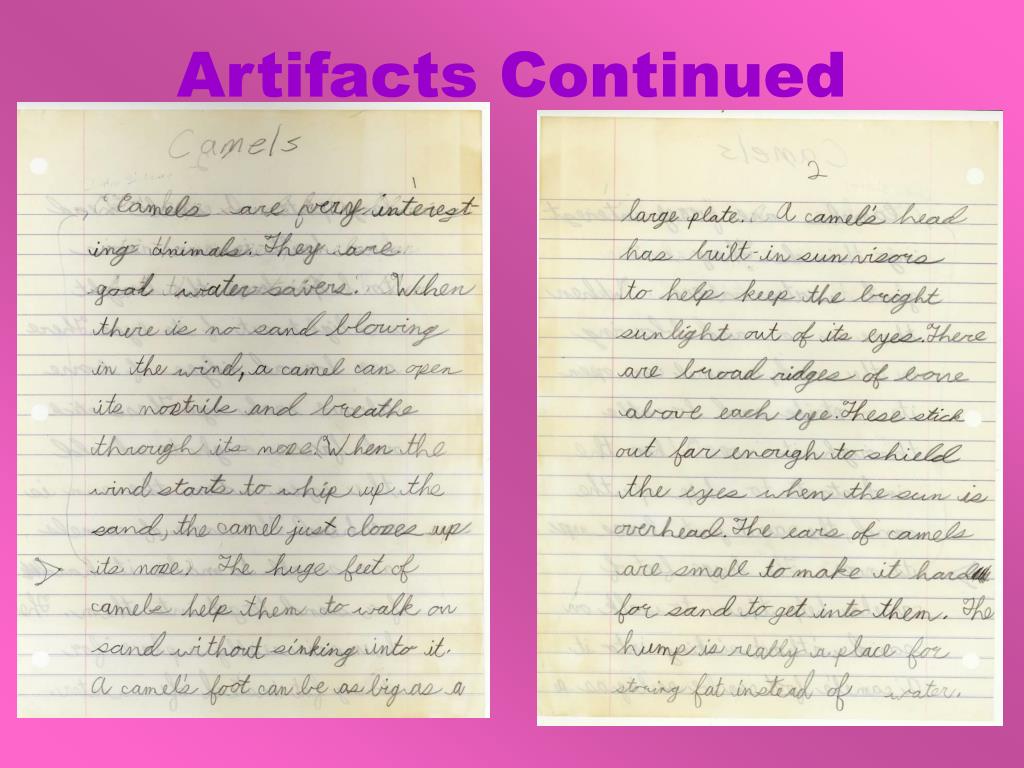 Artifacts Continued
Camels
1
Camels are very interest
ing animals. They are
good water savers. When
there is no sand blowing
in the wind, a camel can open
its nostrils and breathe
through its nose. When the
wind starts to whip up the
sand, the camel just closes up
its nose. The huge feet of
camels help them to walk on
sand without sinking into it.
A camel's foot can be as big as a
2
large plate. A camel's head
has built-in sun visors
to help keep the bright
sunlight out of its eyes. There
are broad ridges of bone
above each eye. These stick
out far enough to shield
the eyes when the sun is
overhead. The ears of camels
are small to make it hard
for sand to get into them. The
hump is really a place for
storing fat instead of water.